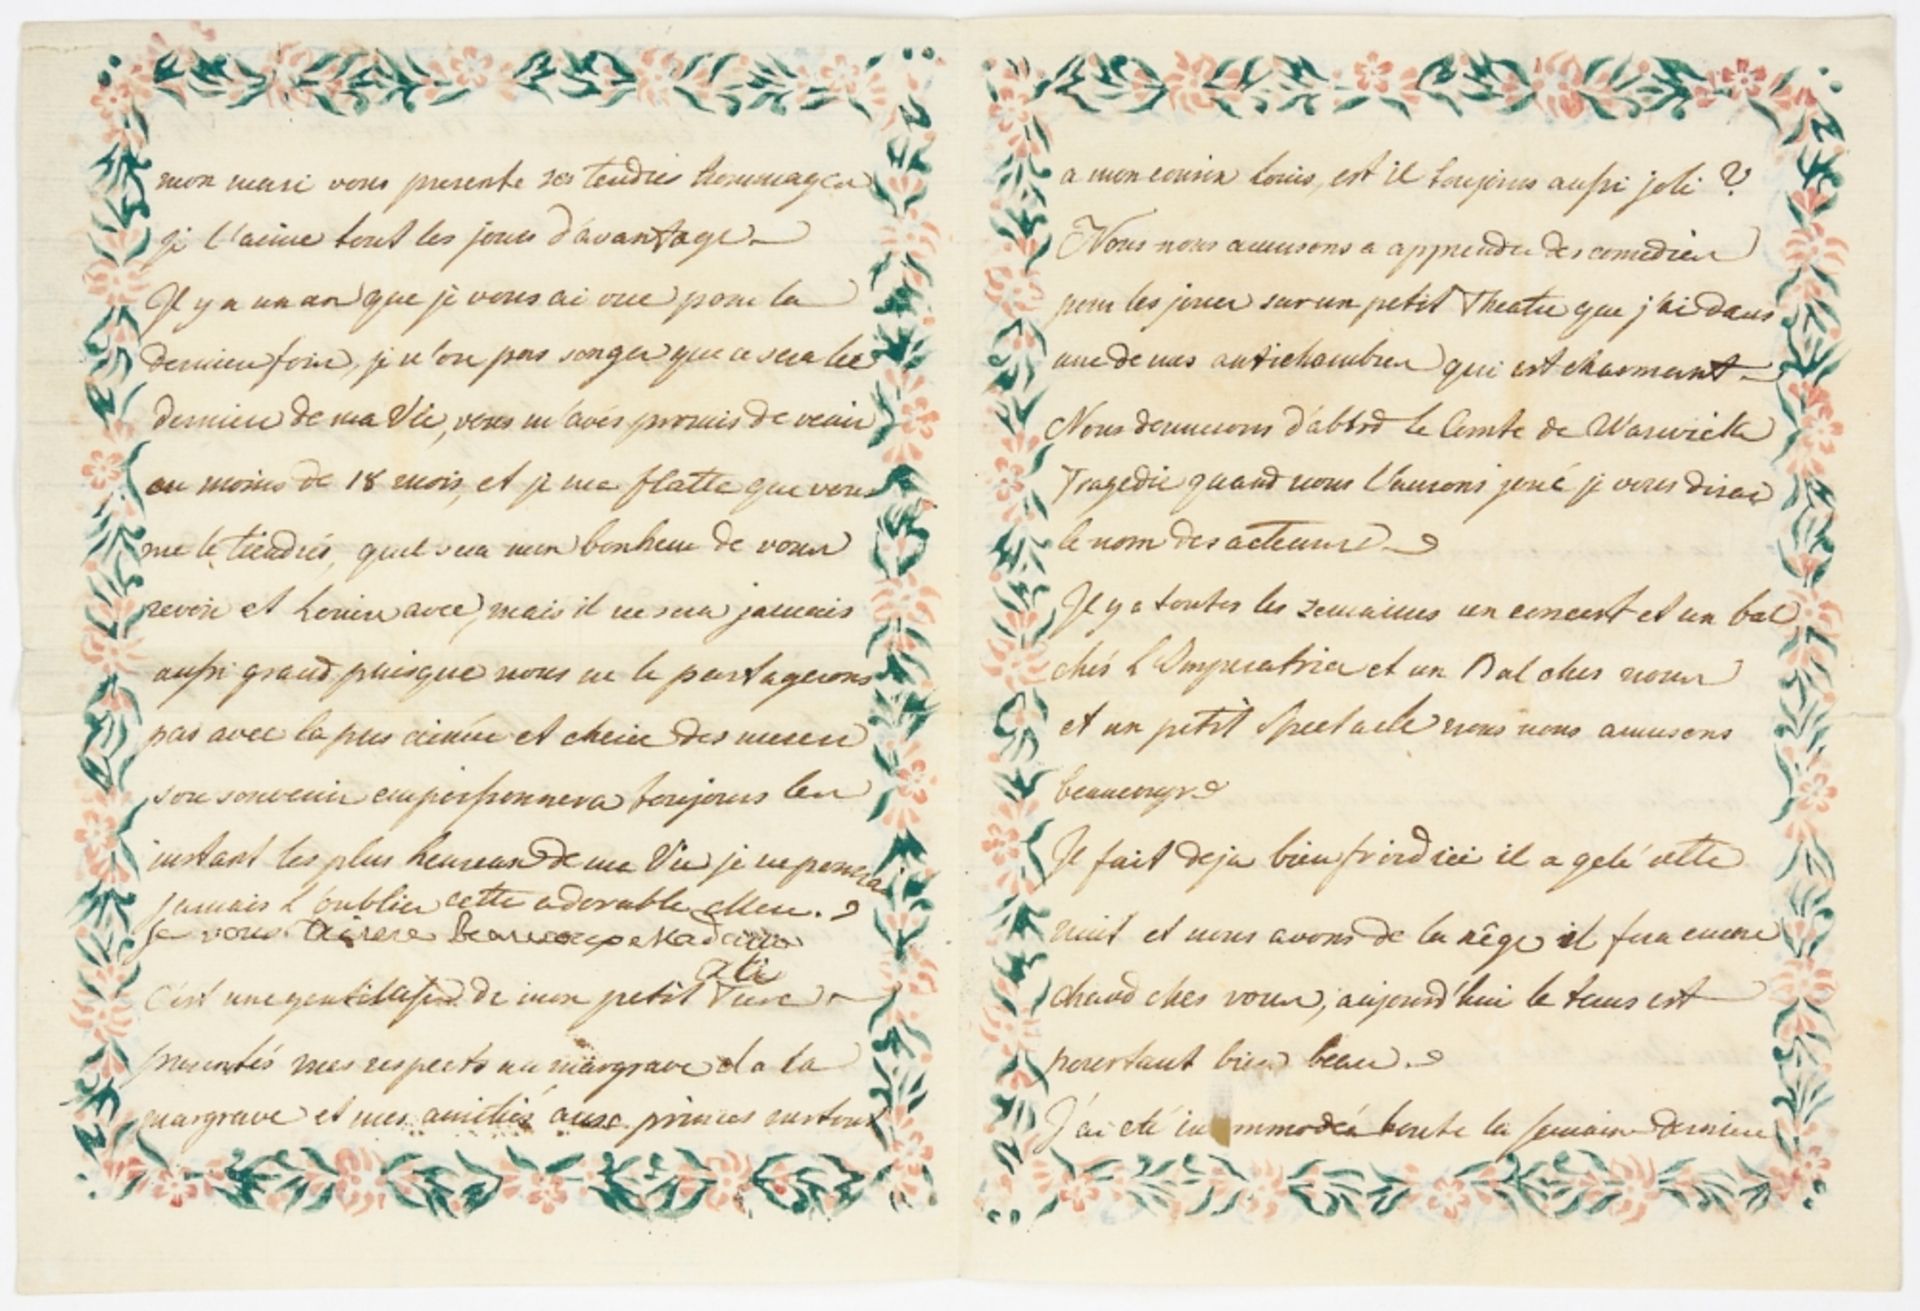 mon mari vous presente ses tendres hommages
je l'aime tout les jours d'avantage
Il y a un an que je vous ai vue pour la
derniere fois, je n'ose pas songer que ce sera la
derniere de ma Vie, vous m'avés promis de venir
au moins de 18 mois, et je me flatte que vous
me le tiendrés, quel sera mon bonheur de vous
revoir et Louis avec, mais il ne sera jamais
aussi grand puisque nous ne le partagerons
pas avec la plus aimée et cherie des meres
son souvenir empoissonnera toujours les
instant les plus heureux de ma Vie je ne pourrai
jamais l'oublier cette adorable Mere.
Je vous baise beaucoup
c'est une gentillesse de mon petit Turc
presentés mes respects au margrave et a la
margrave et mes amitiés aux princes surtout
a mon cousin Louis, est il toujours aussi joli ?
Nous nous amusons a apprendre des comedies
pour les jouer sur un petit Theatre que j'ai dans
une de mes antichambres qui est charmant
Nous donnerons d'abord le Comte de Warwick
Tragedie quand nous l'aurons joué je vous dirai
le nom des acteurs
Il y a toutes les semaines un concert et un bal
chés L'Imperatrice et un Bal ches nous
et un petit Spectacle nous nous amusons
beaucoup
Il fait deja bien froid ici il a gelé cette
nuit et nous avons de la nêge il fera encore
chaud ches vous, aujourd'hui le tems est
pourtant bien beau.
J'ai eté incommodée toute la semaine derniere